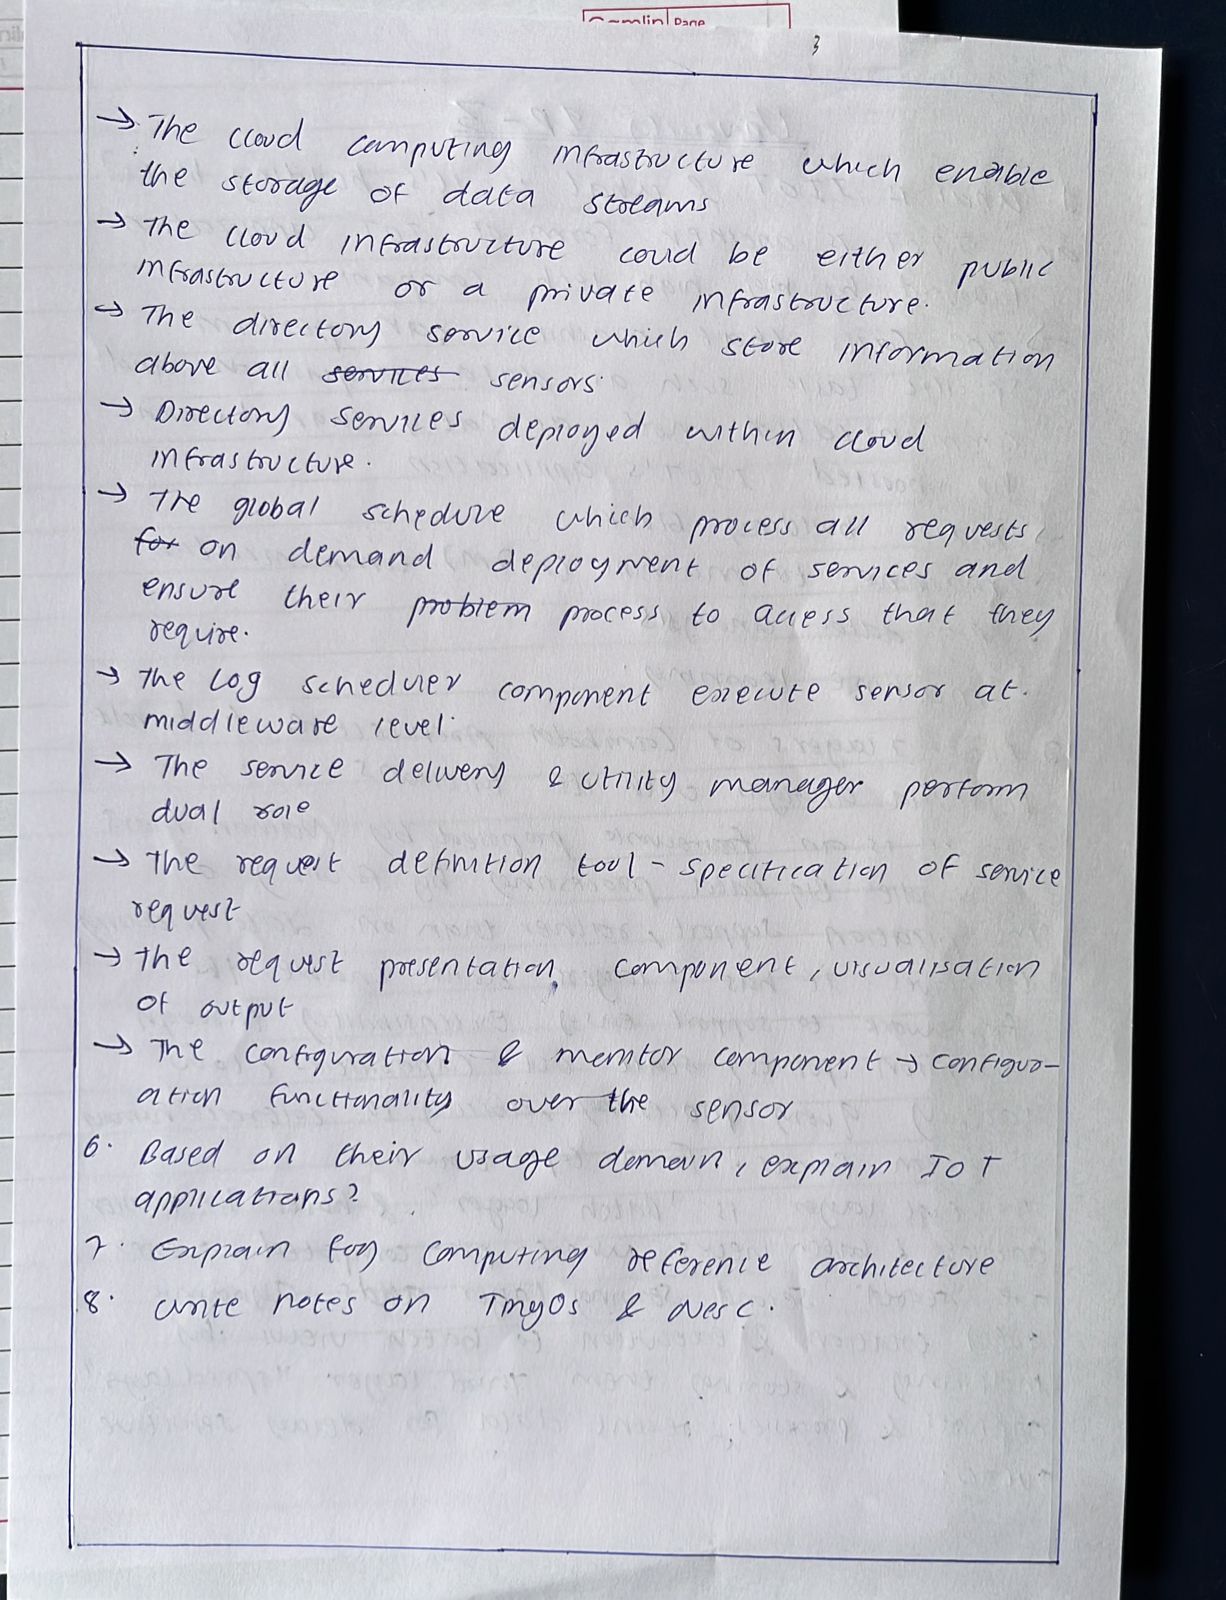 Page
3
→ The cloud computing infrastructure which enable
the storage of data streams
→ The cloud infrastructure could be either public
infrastructure or a private infrastructure.
→ The directory service which store information
above all services sensors.
→ Directory services deployed within cloud
infrastructure.
→ The global schedule which process all requests
for on demand deployment of services and
ensure their problem process to access that they
require.
→ The Log scheduler component execute sensor at.
middleware level.
→ The service delivery & utility manager perform
dual role
→ The request definition tool - specification of service
request
→ The request presentation component, visualisation
of output
→ The configuration & monitor component → configur-
ation functionality over the sensor
6. Based on their usage domain, explain IoT
applications?
7. Explain fog computing reference architecture
8. write notes on TinyOs & NesC.